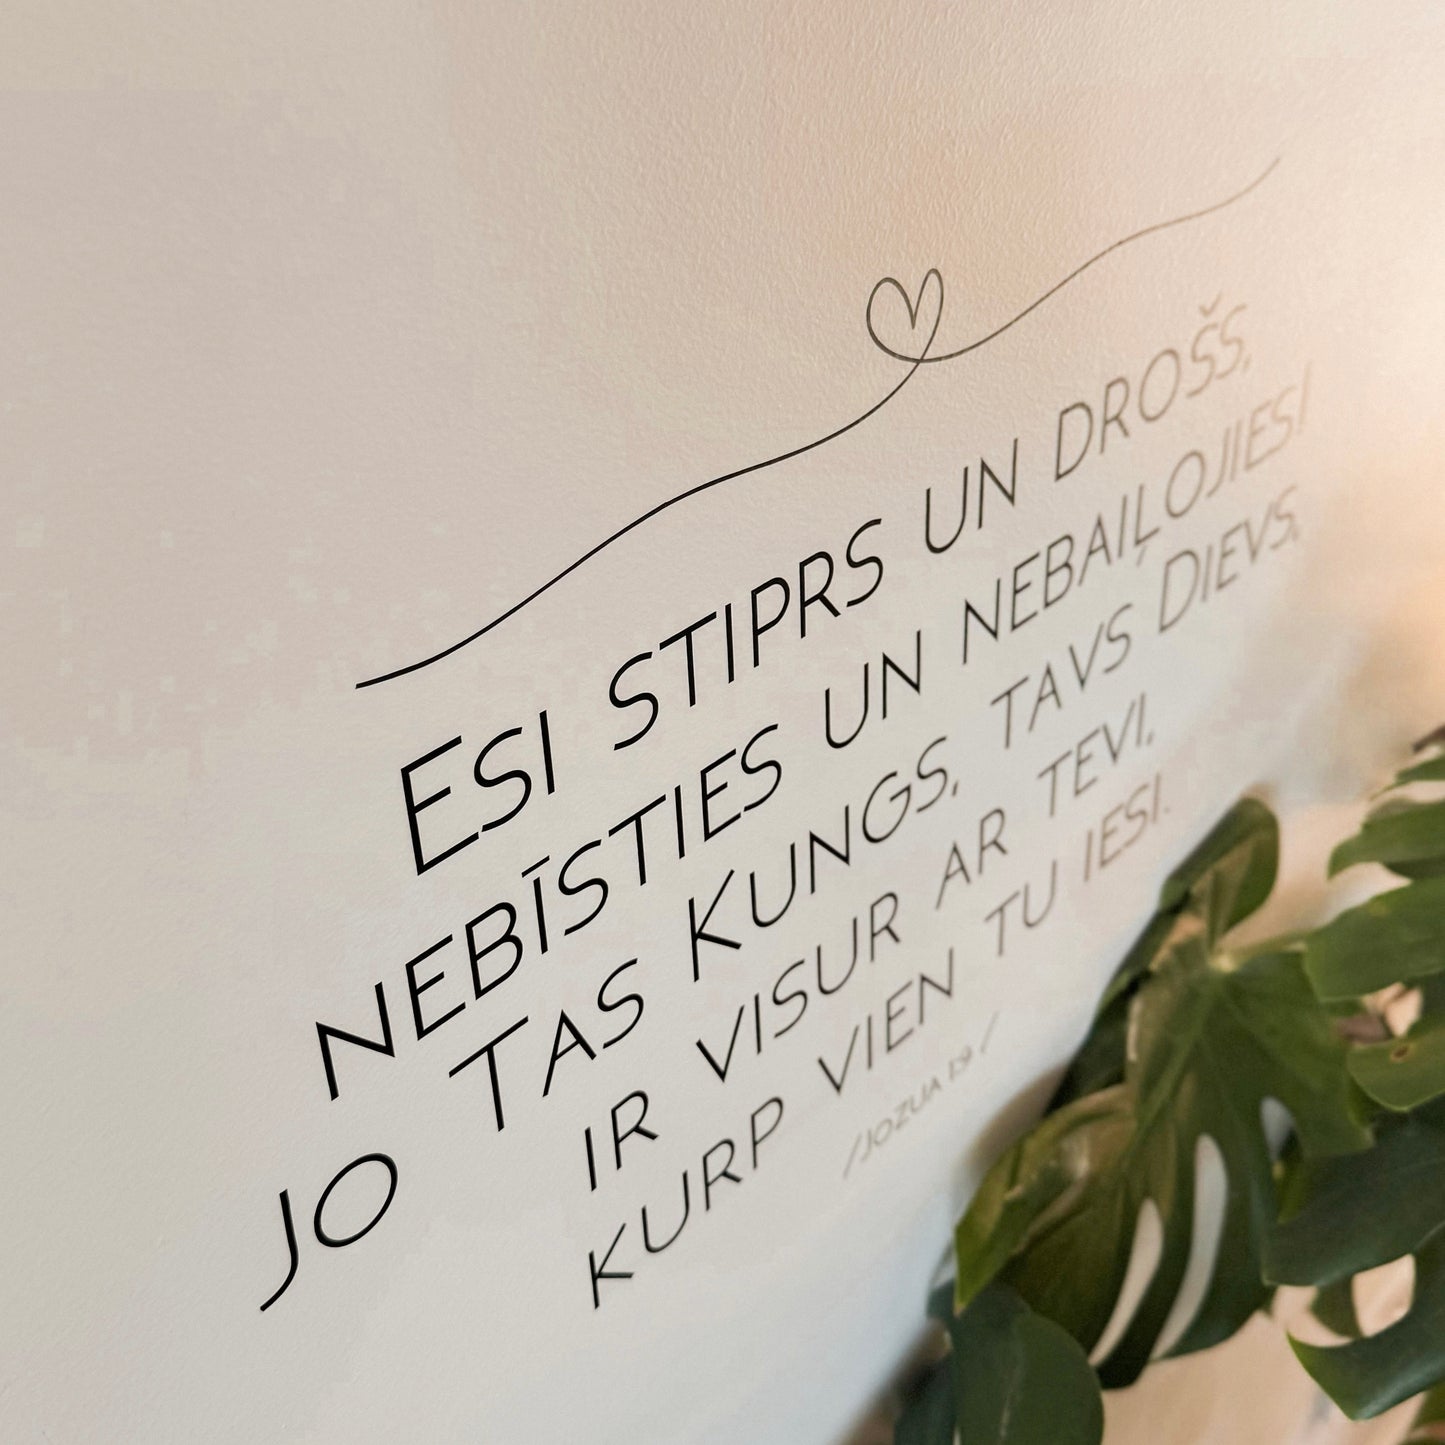 Esi stiprs un drošs,
nebīsties un nebaiļojiesi
jo Tas Kungs, tavs Dievs,
ir visur ar tevi,
kurp vien tu iesi.
/Jozua 1:9/